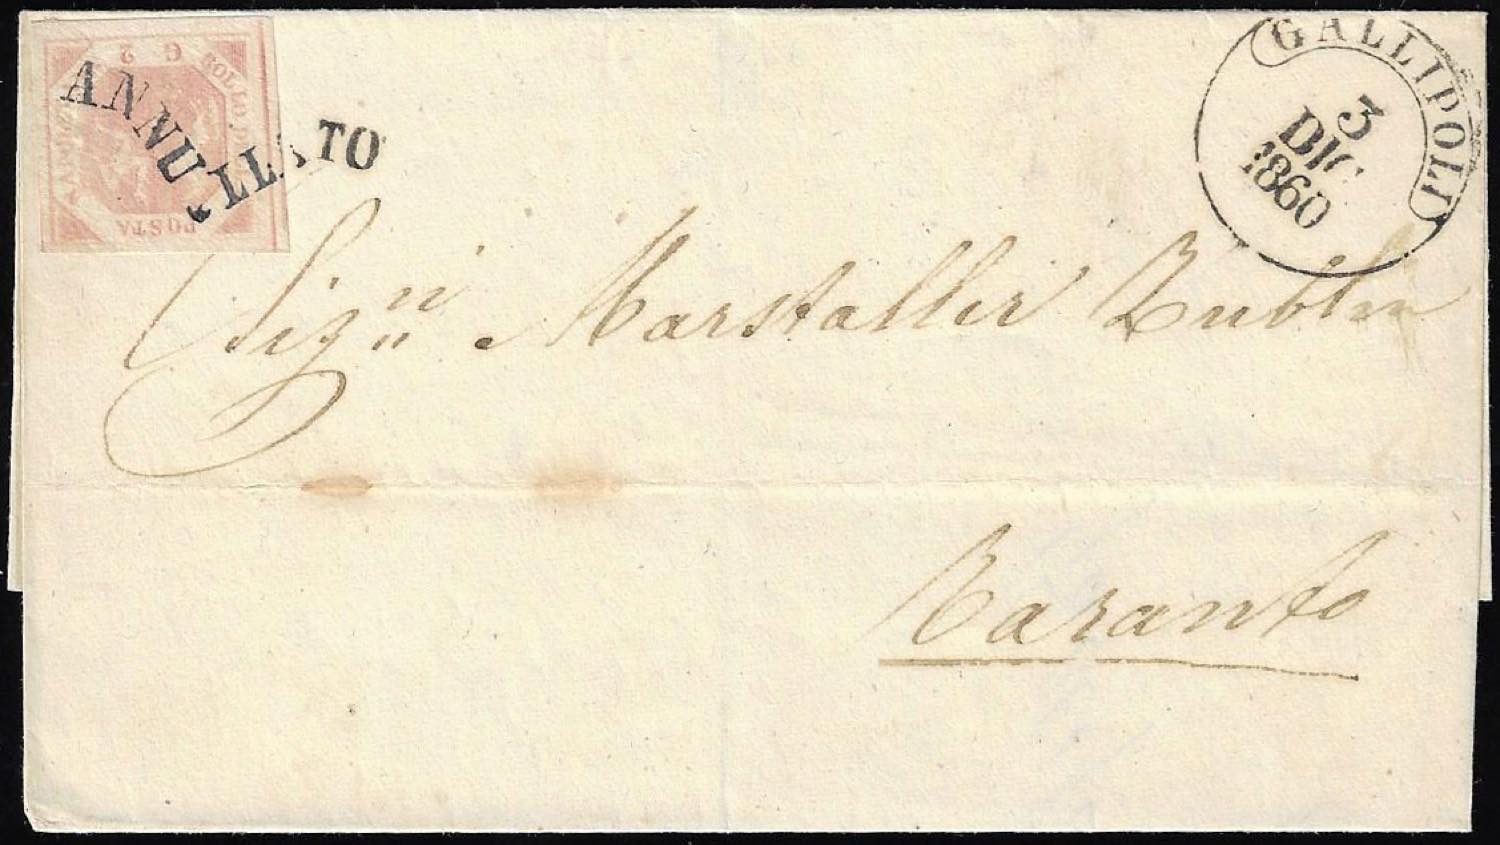 G 2
BOLLO DELLA
POSTA
NAPOLETANA
ANNULLATO
GALLIPOLI
5
DIC
1860
Sigⁿⁱ Marstaller Zublin
Taranto